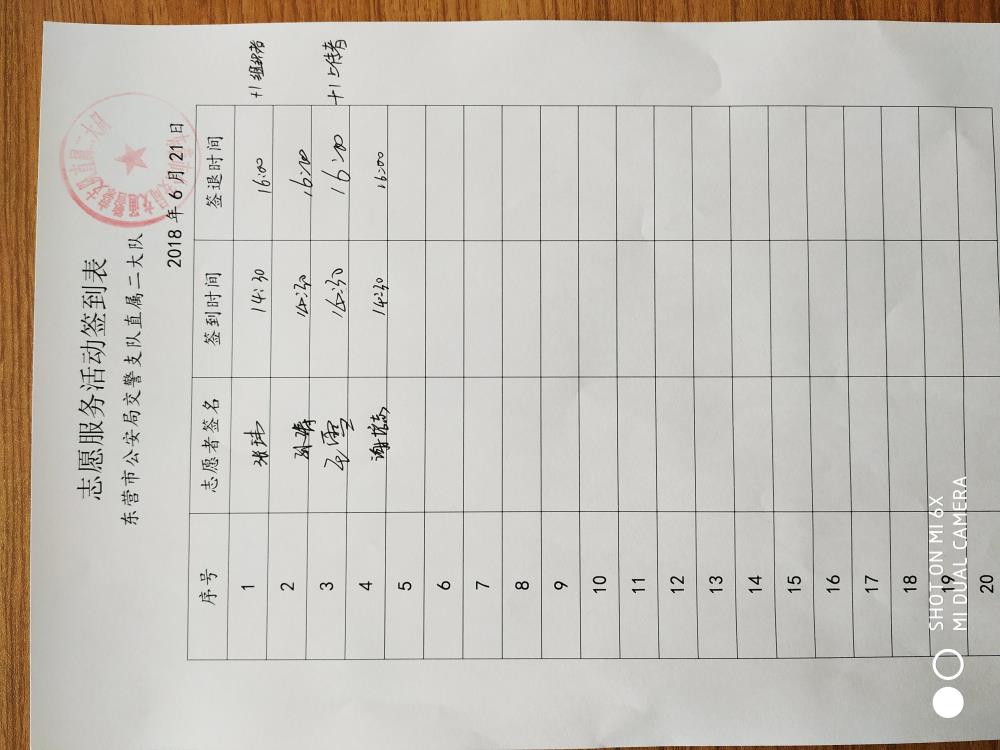 志愿服务活动签到表
东营市公安局交警支队直属二大队
2018 年 6 月 21 日
序号 志愿者签名 签到时间 签退时间
1 张玮 14:30 16:00 +1 组织者
2 14:30 16:00
3 王雪 14:30 16:00 +1 上传者
4 14:30 16:00
5
6
7
8
9
10
11
12
13
14
15
16
17
18
19
20
SHOT ON MI 6X
MI DUAL CAMERA